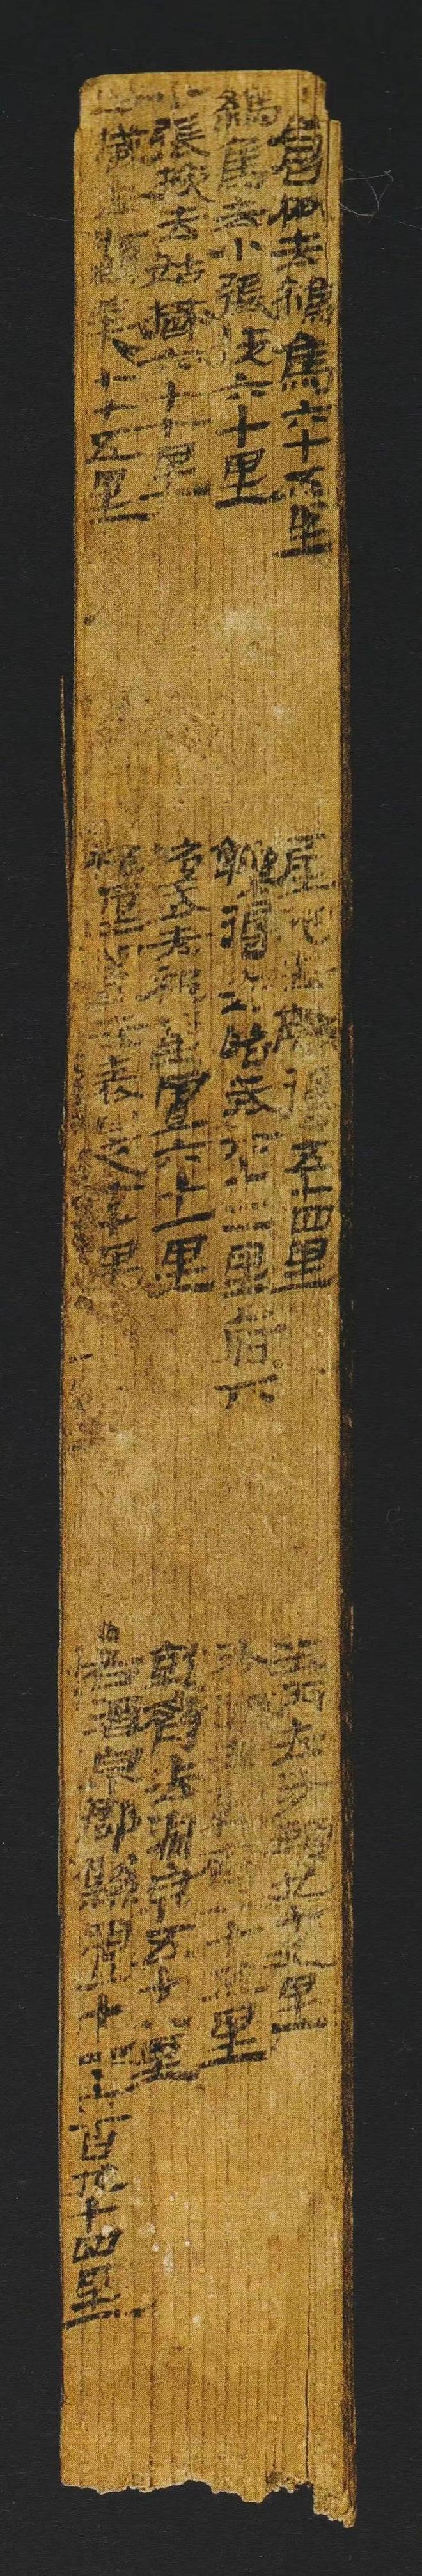 倉松去鸞鳥六十五里
鸞鳥去小張掖六十里
小張掖去姑臧六十七里
姑臧去顯美七十五里
氐池去觻得五十四里
觻得去昭武六十二里府下
昭武去祁連置六十一里
祁連置去表是七十里
玉門去沙頭九十九里
沙頭去乾齊八十五里
乾齊去淵泉五十八里
右酒泉郡縣置十一六百九十四里